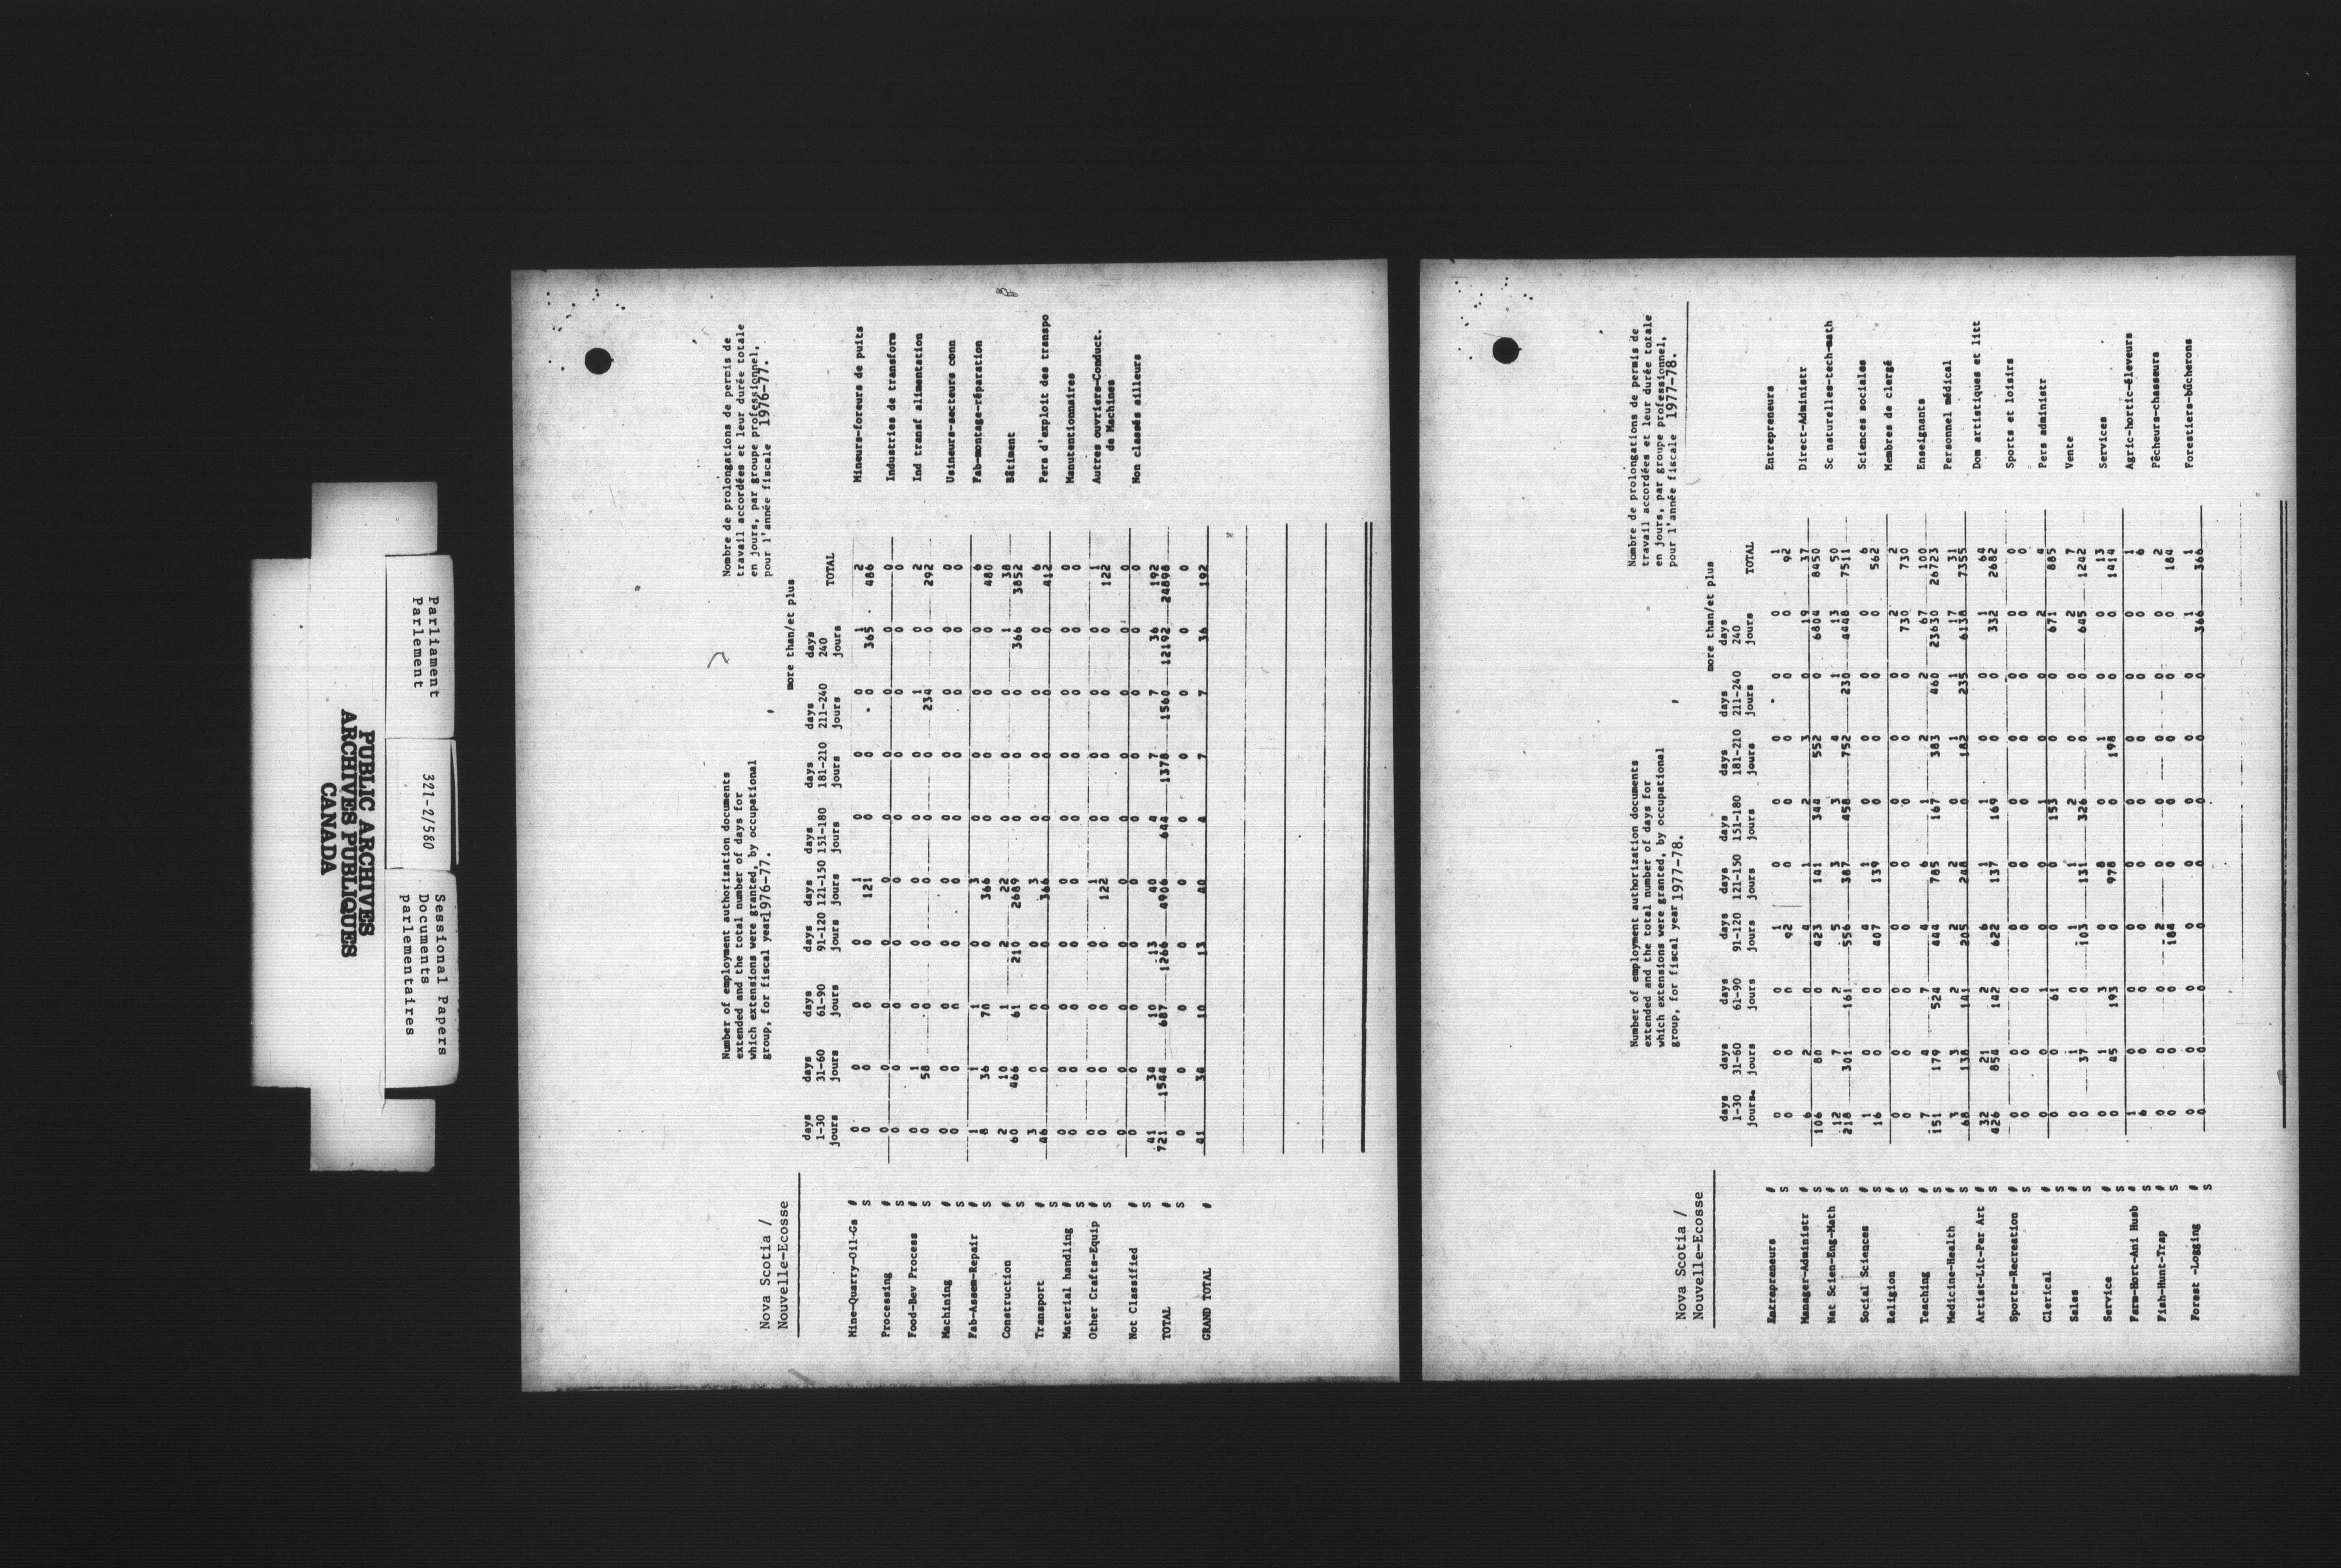 Parliament
Parlement
321-2/580
Sessional Papers
Documents
parlementaires
PUBLIC ARCHIVES
ARCHIVES PUBLIQUES
CANADA
Nova Scotia /
Nouvelle-Ecosse
Number of employment authorization documents
extended and the total number of days for
which extensions were granted, by occupational
group, for fiscal year 1976-77.
Nombre de prolongations de permis de
travail accordées et leur durée totale
en jours, par groupe professionnel,
pour l'année fiscale 1976-77.
more than/et plus
days days days days days days days days days
1-30 31-60 61-90 91-120 121-150 151-180 181-210 211-240 240 TOTAL
jours jours jours jours jours jours jours jours jours
Mine-Quarry-Oil-Gs # 0 0 0 0 1 0 0 0 1 2 Mineurs-foreurs de puits
S 0 0 0 0 121 0 0 0 365 486
Processing # 0 0 0 0 0 0 0 0 0 0 Industries de transform
S 0 0 0 0 0 0 0 0 0 0
Food-Bev Process # 0 1 0 0 0 0 0 1 0 2 Ind transf alimentation
S 0 58 0 0 0 0 0 234 0 292
Machining # 0 0 0 0 0 0 0 0 0 0 Usineurs-secteurs conn
S 0 0 0 0 0 0 0 0 0 0
Fab-Assem-Repair # 1 1 1 0 3 0 0 0 0 6 Fab-montage-réparation
S 8 36 70 0 366 0 0 0 0 480
Construction # 2 10 1 2 22 0 0 0 1 38 Bâtiment
S 60 466 61 210 2689 0 0 0 366 3852
Transport # 3 0 0 0 3 0 0 0 0 6 Pers d'exploit des transpo
S 46 0 0 0 366 0 0 0 0 412
Material handling # 0 0 0 0 0 0 0 0 0 0 Manutentionnaires
S 0 0 0 0 0 0 0 0 0 0
Other Crafts-Equip # 0 0 0 0 1 0 0 0 0 1 Autres ouvriers-Conduct.
S 0 0 0 0 122 0 0 0 0 122 de Machines
Not Classified # 0 0 0 0 0 0 0 0 0 0 Non classés ailleurs
S 0 0 0 0 0 0 0 0 0 0
TOTAL # 41 34 10 13 40 4 7 7 36 192
S 721 1544 687 1266 4906 644 1378 1560 12192 24898
0 0 0 0 0 0 0 0 0 0
GRAND TOTAL # 41 34 10 13 40 4 7 7 36 192
Nova Scotia /
Nouvelle-Ecosse
Number of employment authorization documents
extended and the total number of days for
which extensions were granted, by occupational
group, for fiscal year 1977-78.
Nombre de prolongations de permis de
travail accordées et leur durée totale
en jours, par groupe professionnel,
pour l'année fiscale 1977-78.
more than/et plus
days days days days days days days days days
1-30 31-60 61-90 91-120 121-150 151-180 181-210 211-240 240 TOTAL
jours. jours jours jours jours jours jours jours jours
Entrepreneurs # 0 0 0 1 0 0 0 0 0 1 Entrepreneurs
S 0 0 0 92 0 0 0 0 0 92
Manager-Administr # 6 2 0 4 1 2 3 0 19 37 Direct-Administr
S 106 80 0 423 141 344 552 0 6804 8450
Nat Scien-Eng-Math # 12 7 2 5 3 3 4 1 13 50 Sc naturelles-tech-math
S 218 301 161 556 387 458 752 230 4448 7511
Social Sciences # 1 0 0 4 1 0 0 0 0 6 Sciences sociales
S 16 0 0 407 139 0 0 0 0 562
Religion # 0 0 0 0 0 0 0 0 2 2 Membres de clergé
S 0 0 0 0 0 0 0 0 730 730
Teaching # 7 4 7 4 6 1 2 2 67 100 Enseignants
S 151 179 524 444 785 167 383 460 23630 26723
Medicine-Health # 3 3 2 2 2 0 1 1 17 31 Personnel médical
S 68 138 141 205 248 0 182 235 6138 7355
Artist-Lit-Per Art # 32 21 2 6 1 1 0 0 1 64 Dom artistiques et litt
S 426 854 142 622 137 169 0 0 332 2682
Sports-Recreation # 0 0 0 0 0 0 0 0 0 0 Sports et loisirs
S 0 0 0 0 0 0 0 0 0 0
Clerical # 0 0 1 0 0 1 0 0 2 4 Pers administr
S 0 0 61 0 0 153 0 0 671 885
Sales # 0 1 0 1 1 2 0 0 2 7 Vente
S 0 37 0 103 131 326 0 0 645 1242
Service # 0 1 3 0 8 0 1 0 0 13 Services
S 0 45 193 0 978 0 198 0 0 1414
Farm-Hort-Ani Husb # 1 0 0 0 0 0 0 0 0 1 Agric-hortic-éleveurs
S 6 0 0 0 0 0 0 0 0 6
Fish-Hunt-Trap # 0 0 0 2 0 0 0 0 0 2 Pêcheurs-chasseurs
S 0 0 0 184 0 0 0 0 0 184
Forest -Logging # 0 0 0 0 0 0 0 0 1 1 Forestiers-bûcherons
S 0 0 0 0 0 0 0 0 366 366